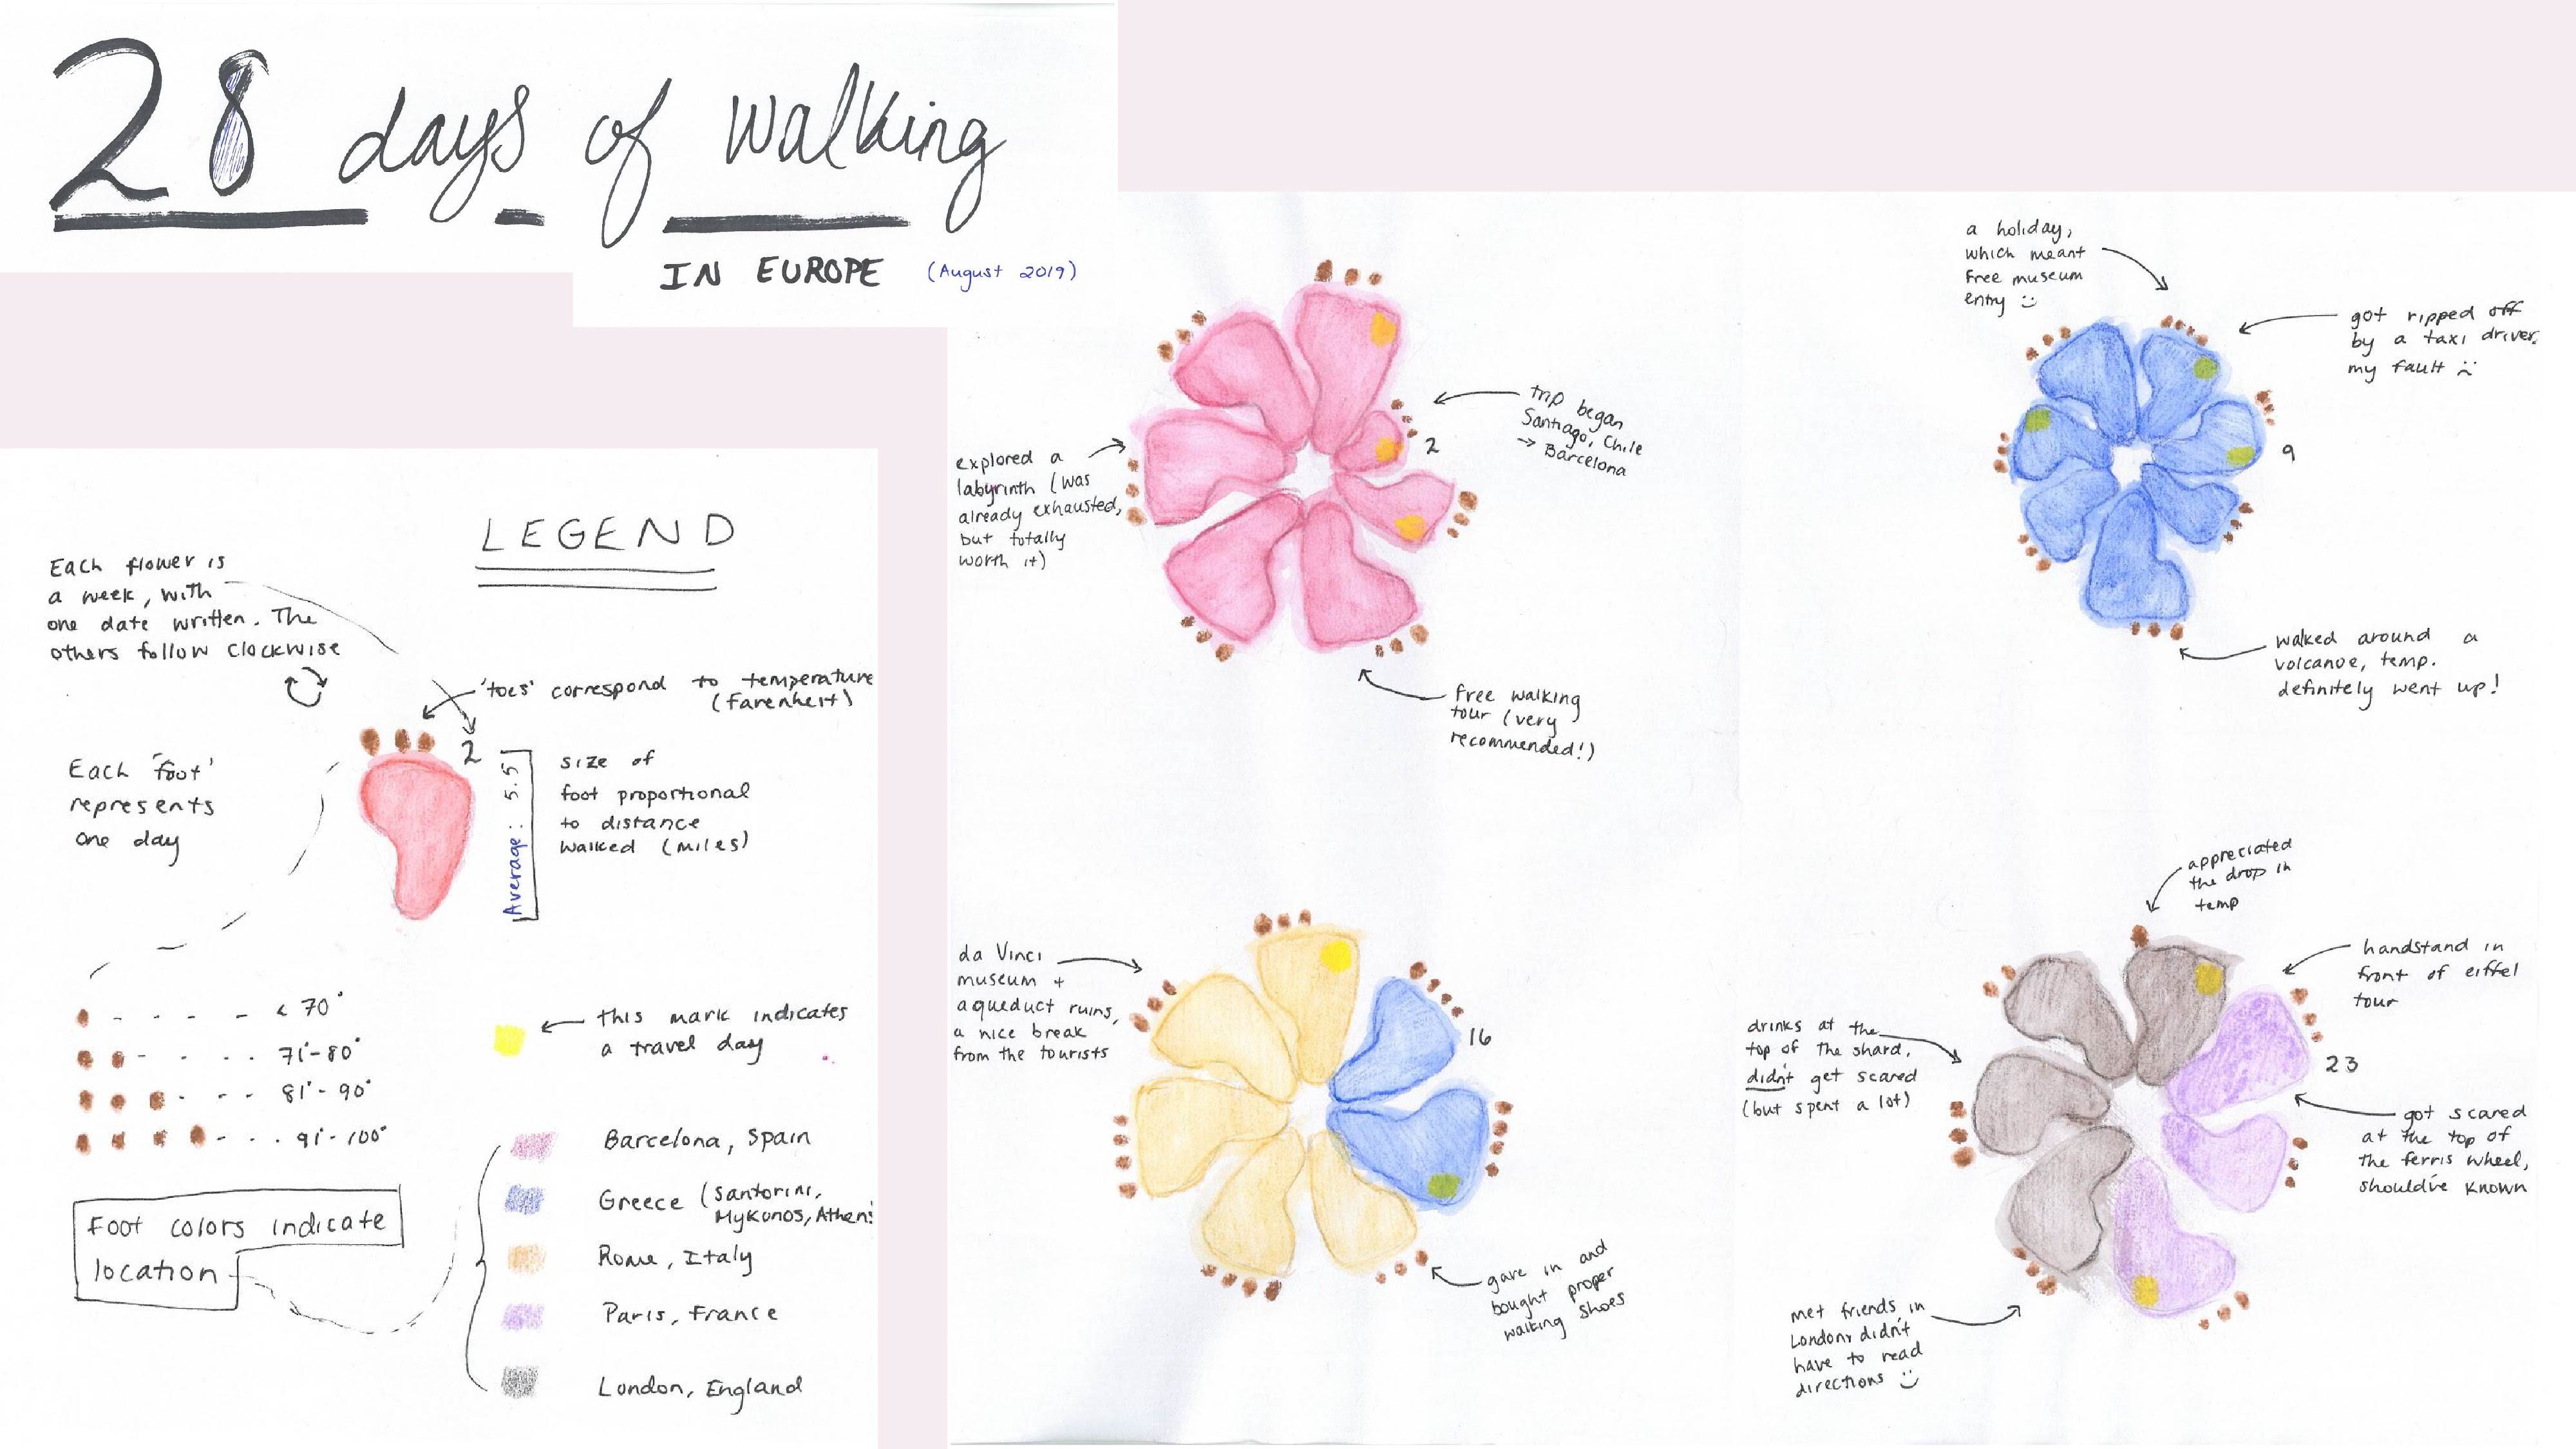 28 days of walking
IN EUROPE (August 2019)
LEGEND
Each flower is
a week, with
one date written. The
others follow clockwise
'toes' correspond to temperature
(Farenheit)
2
Each 'foot'
represents
one day
Average: 5.5
size of
foot proportional
to distance
walked (miles)
< 70°
71°-80°
81°-90°
91°-100°
this mark indicates
a travel day
Foot colors indicate
location
Barcelona, Spain
Greece (Santorini,
Mykonos, Athens
Rome, Italy
Paris, France
London, England
2
trip began
Santiago, Chile
→ Barcelona
explored a
labyrinth (was
already exhausted,
but totally
worth it)
free walking
tour (very
recommended!)
a holiday,
which meant
free museum
entry :)
got ripped off
by a taxi driver,
my fault :(
9
walked around a
volcanoe, temp.
definitely went up!
da Vinci
museum +
aqueduct ruins,
a nice break
from the tourists
16
gave in and
bought proper
walking shoes
appreciated
the drop in
temp
handstand in
front of eiffel
tour
23
drinks at the
top of the shard,
didn't get scared
(but spent a lot)
got scared
at the top of
the ferris wheel,
should've known
met friends in
London, didn't
have to read
directions :)